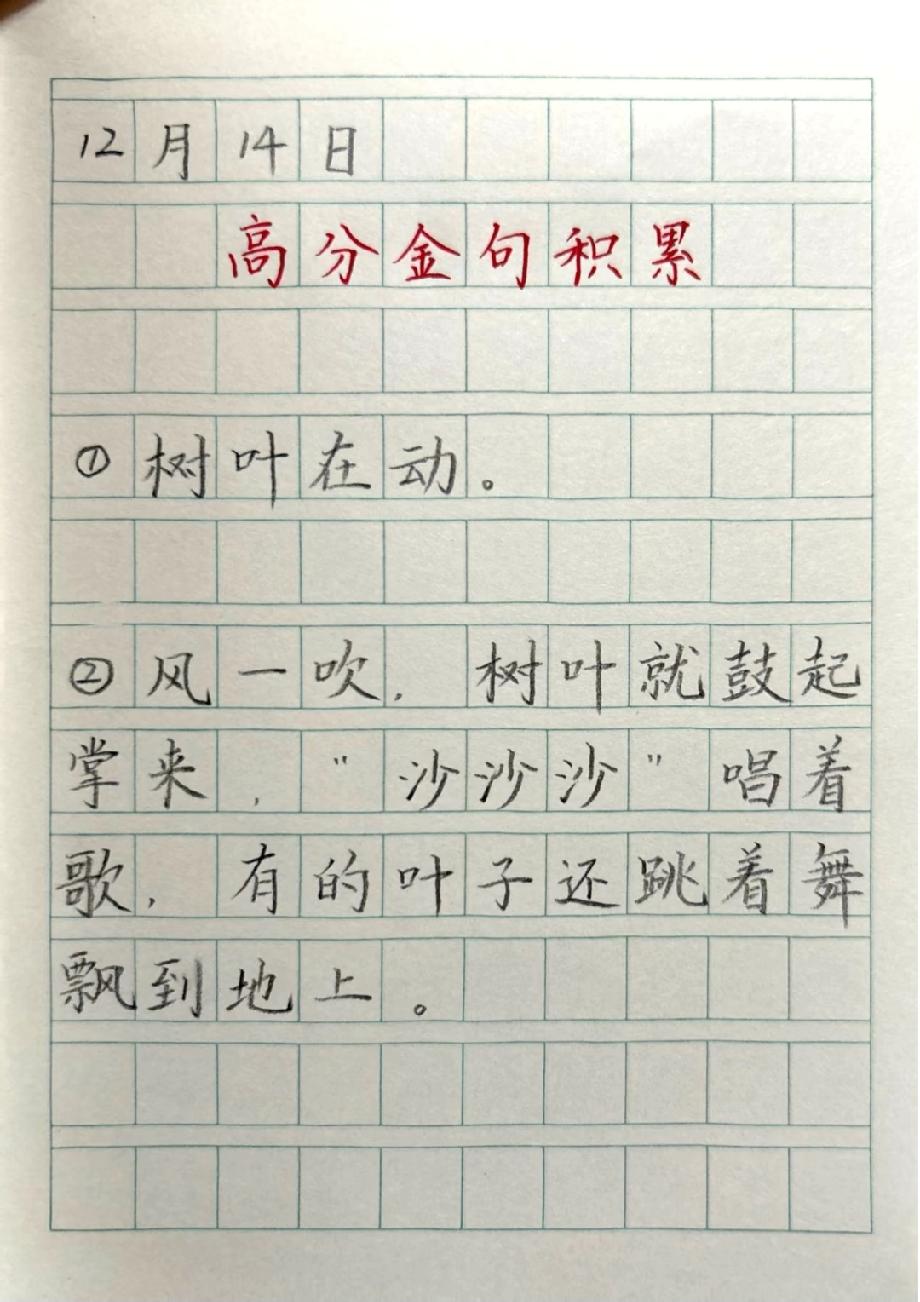 12月14日
高分金句积累
①树叶在动。
②风一吹，树叶就鼓起
掌来，"沙沙沙"唱着
歌，有的叶子还跳着舞
飘到地上。